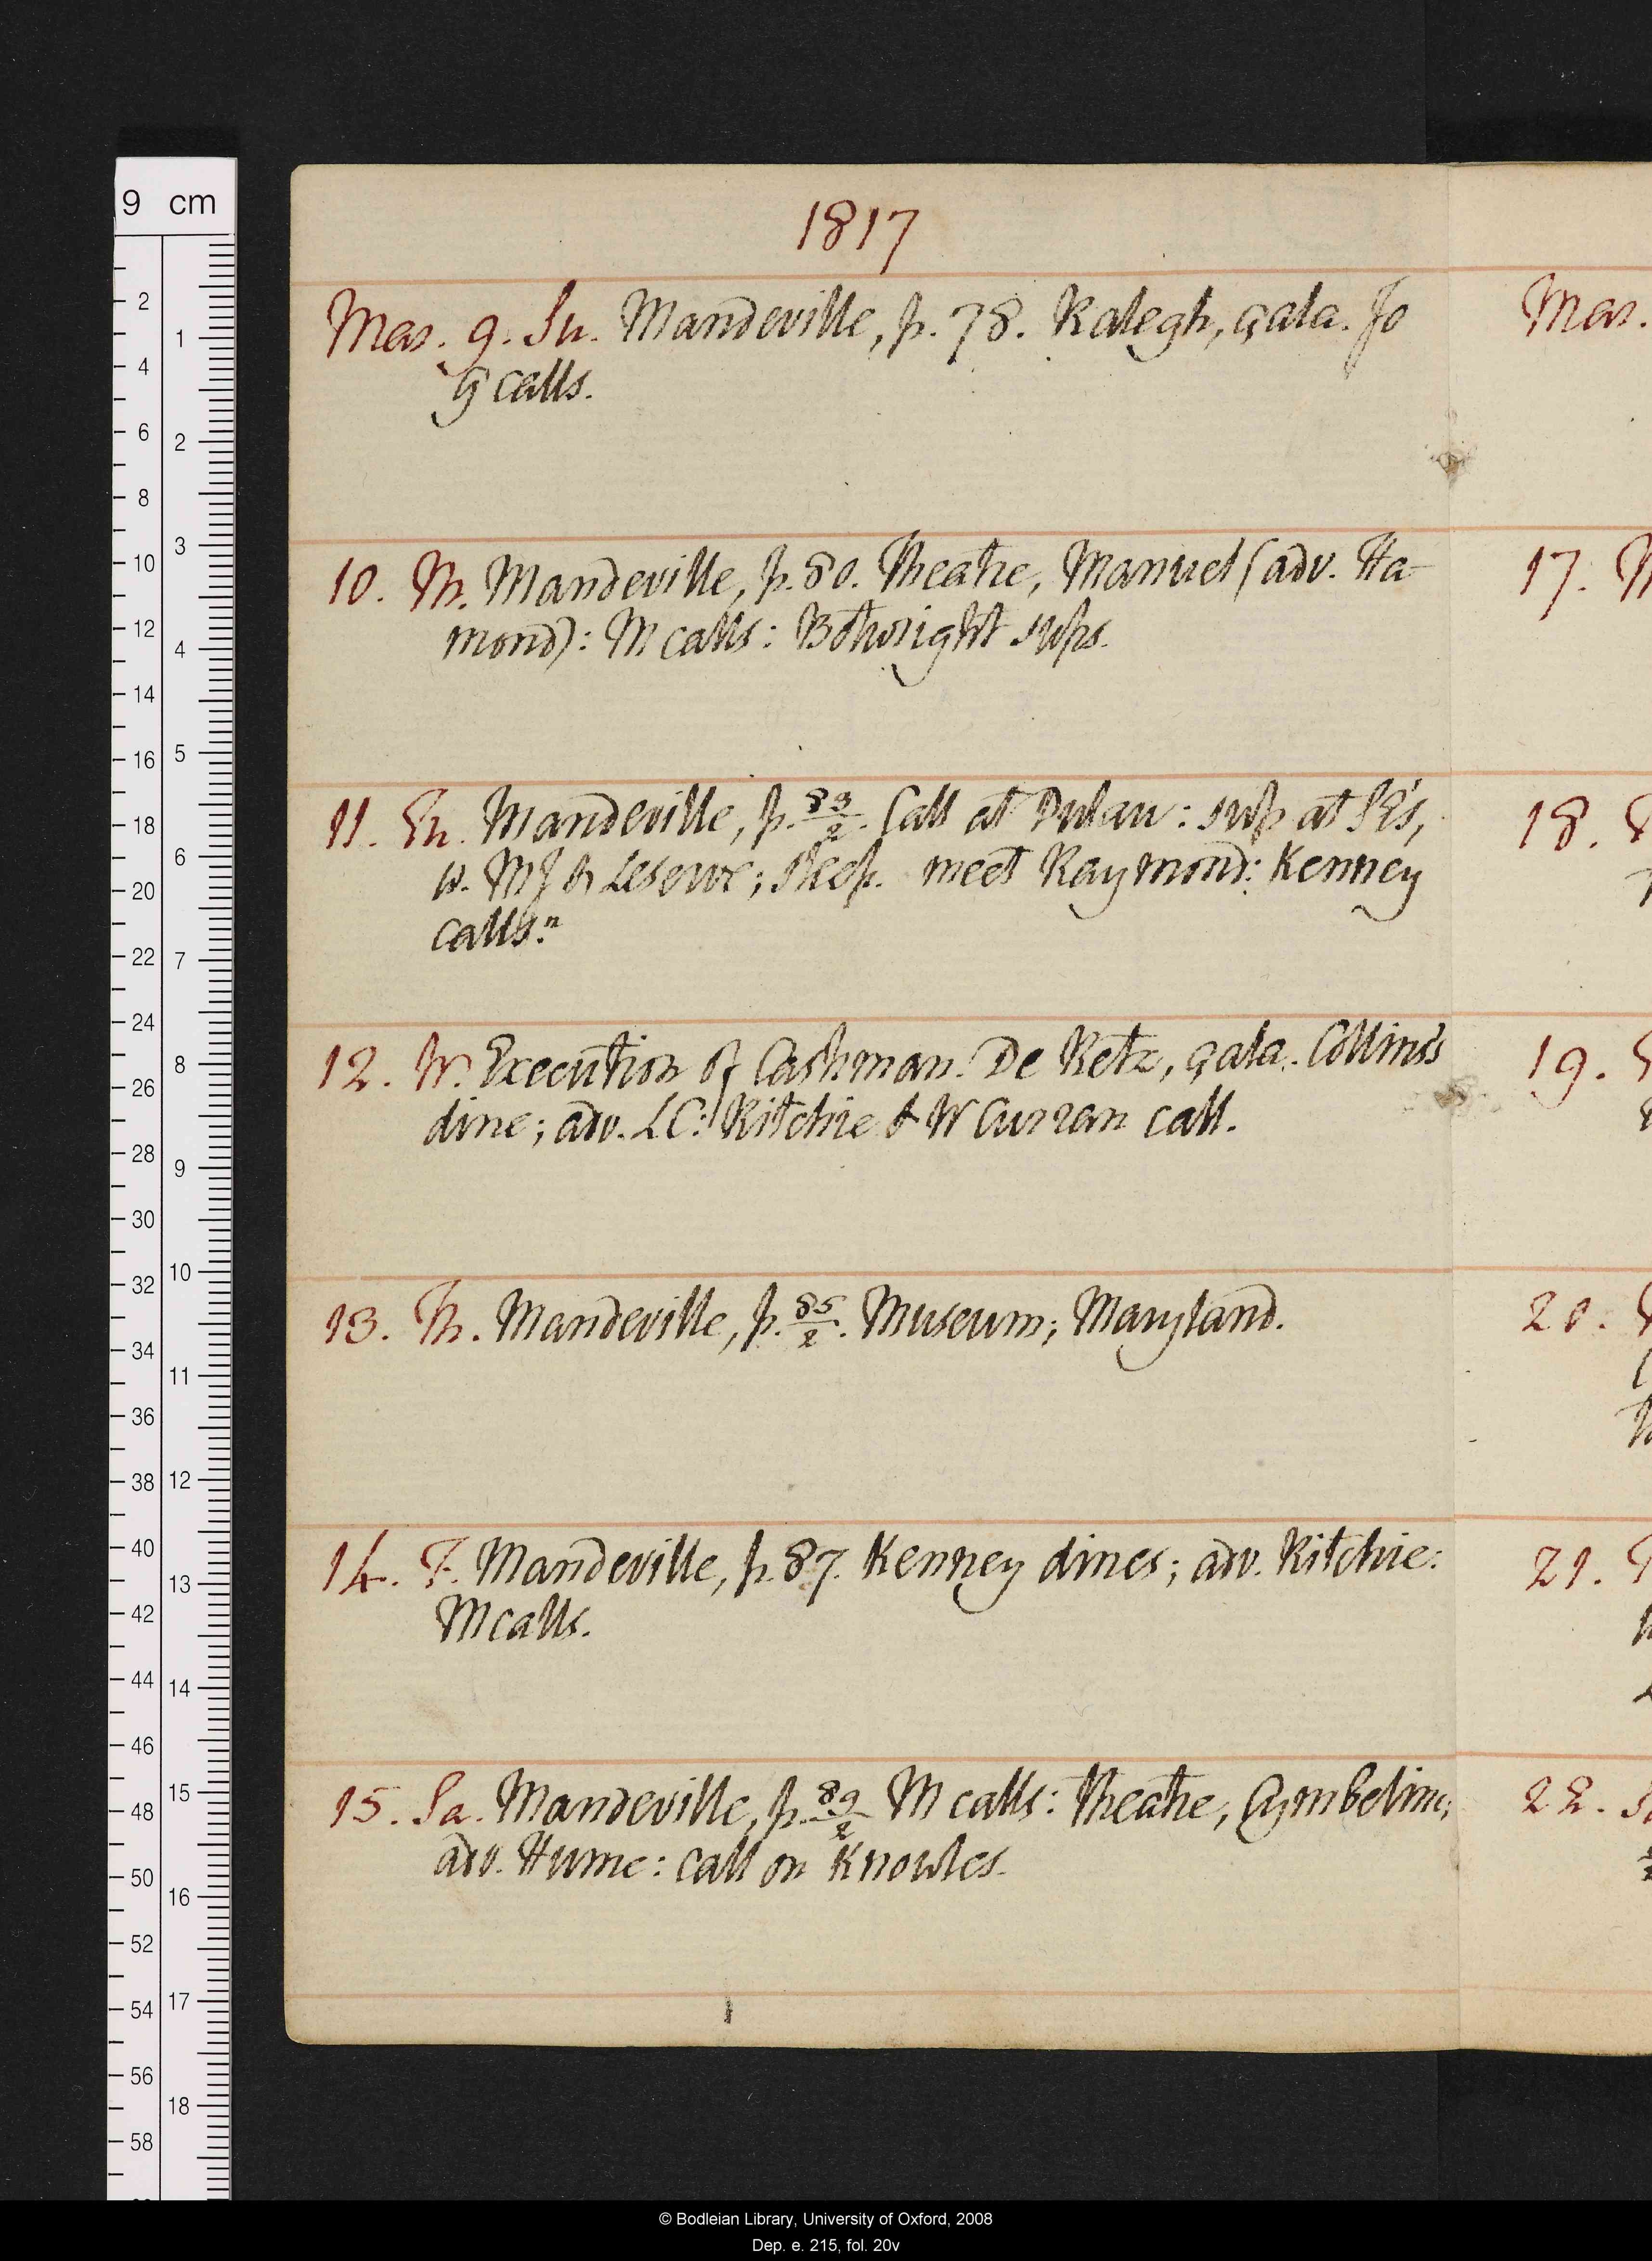 1817
Mar. 9. Su. Mandeville, p. 78. Ralegh, çala. Jo
G calls.
10. M. Mandeville, p. 80. Theatre, Manuel (adv. Ha-
mond): M calls: Bothwright sups.
11. Tu. Mandeville, p. 83/2. Call at Dulau: sup at
w. MJ & Leserve; sleep. meet Raymond: Kenney
calls.n
12. W. Execution of Cashman. De Retz, çala. Collins's
dine; adv. LC: Ritchie & W Curran call.
13. Th. Mandeville, p. 85/2. Museum; Maryland.
14. F. Mandeville, p. 87. Kenney dines; adv. Ritchie:
M calls.
15. Sa. Mandeville, p. 89/2 M calls: Theatre, Cymbeline;
adv. Hume: call on Knowles.
Mar.
17. M
18.
19.
20.
21.
22.
9 cm
2
4
6
8
10
12
14
16
18
20
22
24
26
28
30
32
34
36
38
40
42
44
46
48
50
52
54
56
58
1
2
3
4
5
6
7
8
9
10
11
12
13
14
15
16
17
18
© Bodleian Library, University of Oxford, 2008
Dep. e. 215, fol. 20v